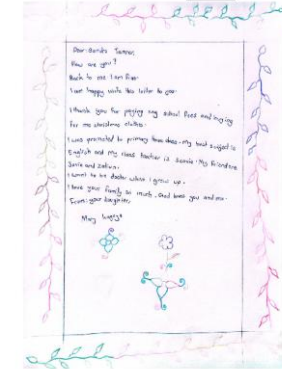 Dear: Sandra Tanner,
How are you?
Back to me I am fine.
I am happy write this letter to you.
I thank you for paying my school fees and buying
For me christmas clothes.
I was promoted to primary three class. My best subject is
English and my class teacher is My friend are
Janie and
I want to be doctor when I grow up.
I love your family so much. God bless you and me.
From: your daughter,
Mary